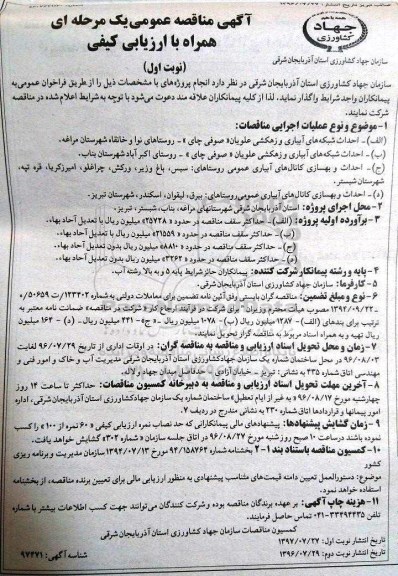 جهاد کشاورزی
آگهی مناقصه عمومی یک مرحله ای
همراه با ارزیابی کیفی
(نوبت اول)
سازمان جهاد کشاورزی استان آذربایجان شرقی
سازمان جهاد کشاورزی استان آذربایجان شرقی در نظر دارد انجام پروژه‌های با مشخصات ذیل را از طریق فراخوان عمومی به
پیمانکاران واجد شرایط واگذار نماید. لذا از کلیه پیمانکاران علاقه مند دعوت می‌شود با توجه به شرایط اعلام شده در مناقصه
شرکت نمایند.
۱- موضوع و نوع عملیات اجرایی مناقصات:
(الف)- احداث شبکه‌های آبیاری و زهکشی علویان« صوفی چای » - روستاهای نوا و خانقاه شهرستان مراغه.
(ب)- احداث شبکه‌های آبیاری و زهکشی علویان « صوفی چای » - روستای اکبر آباد شهرستان بناب.
(ج) - احداث و بهسازی کانال‌های آبیاری عمومی روستاهای: سیس، باغ وزیر، ورکش، چراغلو، امیرزکریا، قره تپه،
شهرستان شبستر.
(د) - احداث و بهسازی کانال‌های آبیاری عمومی روستاهای: بیرق، لیقوان، اسکندر، شهرستان تبریز.
۲- محل اجرای پروژه: استان آذربایجان شرقی شهرستانهای مراغه، بناب، شبستر، تبریز.
۳- برآورده اولیه پروژه: (الف)- حداکثر سقف مناقصه در حدود « ۲۵۷۲۸ » میلیون ریال با تعدیل آحاد بهاء.
(ب)- حداکثر سقف مناقصه در حدود « ۲۱۵۵۹ » میلیون ریال با تعدیل آحاد بهاء.
(ج)- حداکثر سقف مناقصه در حدود « ۸۸۱۰ » میلیون ریال بدون تعدیل آحاد بهاء.
(د)- حداکثر سقف مناقصه در حدود « ۳۲۶۲ » میلیون ریال بدون تعدیل آحاد بهاء.
۴- پایه و رشته پیمانکار شرکت کننده: پیمانکاران حائز شرایط پایه ۵ و به بالا رشته آب.
۵- کارفرما: سازمان جهاد کشاورزی استان آذربایجان شرقی.
۶- نوع و مبلغ تضمین: مناقصه گران بایستی وفق آئین نامه تضمین برای معاملات دولتی به شماره ۱۲۳۴۰۲/ت ۵۰۶۵۹/ه
۱۳۹۴/۰۹/۲۲ مصوب هیأت محترم وزیران" برای شرکت در فرآیند ارجاع کار« شرکت در مناقصه» ضمانت نامه معتبر به
ترتیب برای بندهای (الف)- ۱۲۸۷ میلیون ریال (ب)- ۱۰۷۸ میلیون ریال.- «ج» - ۴۴۱ میلیون ریال- (د)- ۱۶۴ میلیون
ریال تهیه و به همراه اسناد مربوط به مناقصه گزار تحویل نمایند.
۷- زمان و محل تحویل اسناد ارزیابی و مناقصه به مناقصه گران: در اوقات اداری از تاریخ ۹۶/۰۷/۲۹ لغایت
۹۶/۰۸/۰۳ در محل ساختمان شماره یک سازمان جهادکشاورزی استان آذربایجان شرقی مدیریت آب و خاک و امور فنی و
مهندسی اتاق شماره ۳۳۵ به نشانی: تبریز - خیابان آزادی - حدفاصل میدان جهاد و لاله.
۸- آخرین مهلت تحویل اسناد ارزیابی و مناقصه به دبیرخانه کمیسیون مناقصات: حداکثر تا ساعت ۱۴ روز
چهارشنبه مورخ ۹۶/۰۸/۱۷« به غیر از ایام تعطیل» ساختمان شماره یک سازمان جهادکشاورزی استان آذربایجان شرقی، اداره
امور پیمانها و قراردادها اتاق شماره ۲۳۰ به نشانی مندرج در ردیف ۷.
۹- زمان گشایش پیشنهادها: پیشنهادهای مالی پیمانکارانی که حد نصاب نمره ارزیابی کیفی « ۶۰ نمره از ۱۰۰ » را کسب
نموده باشند درساعت ۱۰ صبح روز شنبه مورخ ۹۶/۰۸/۲۷ در اتاق جلسه سازمان « شماره ۳۰۲» گشایش خواهد یافت.
۱۰- کمیسیون مناقصه باستناد بند ۱-۲ بخشنامه شماره ۹۴/۱۵۸۷۶۴ مورخ ۱۳۹۴/۰۷/۱۳ سازمان مدیریت و برنامه ریزی
کشور
موضوع: دستورالعمل تعیین دامنه قیمت‌های متناسب پیشنهادی به منظور ارزیابی مالی برای تعیین برنده مناقصه، از بخشنامه
استفاده خواهد نمود.
۱۱- هزینه چاپ آگهی: بر عهده برندگان مناقصه بوده و شرکت کنندگان می‌توانند جهت کسب اطلاعات بیشتر با شماره
تلفن ۳۳۴۹۴۴۳۵-۰۴۱ تماس حاصل فرمایند.
کمیسیون مناقصات سازمان جهاد کشاورزی استان آذربایجان شرقی
تاریخ انتشار نوبت اول: ۱۳۹۷/۰۷/۲۷
تاریخ انتشار نوبت دوم: ۱۳۹۶/۰۷/۲۹
شناسه آگهی: ۹۷۴۷۱